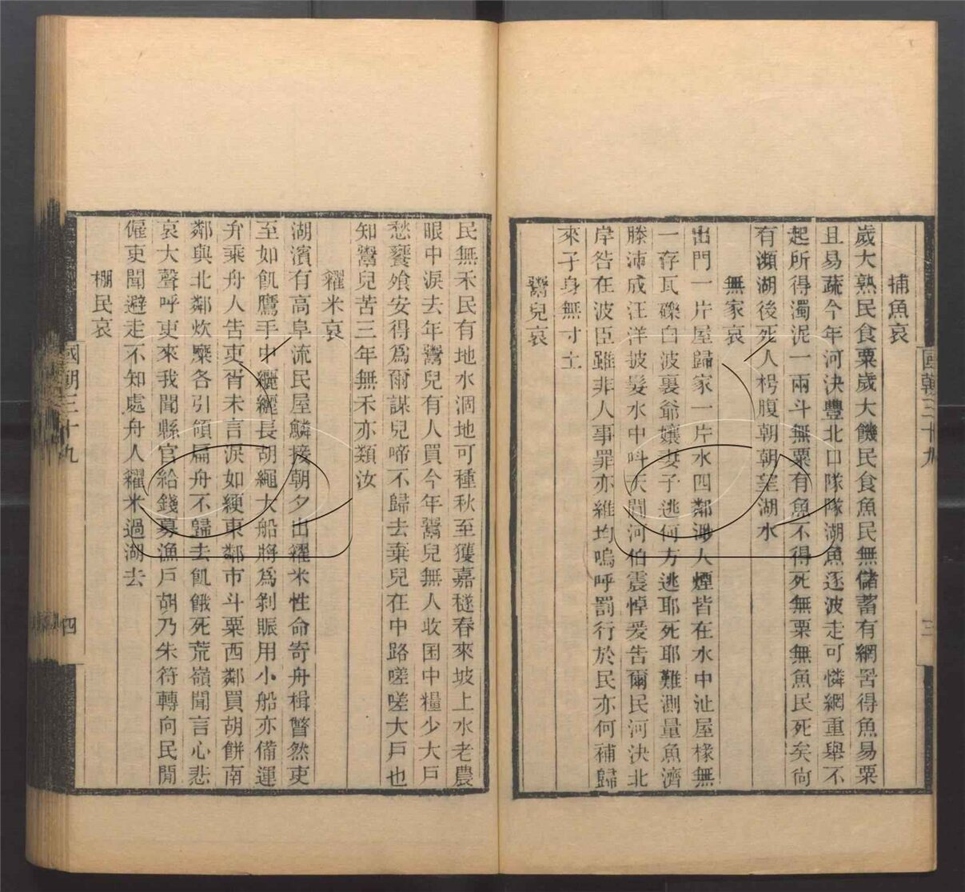 捕魚哀
歲大熟民食粟歲大饑民食魚民無儲蓄有網罟得魚易粟
且易蔬今年河決豐北口隊隊湖魚逐波走可憐網重舉不
起所得濁泥一兩斗無粟有魚不得死無粟無魚民死矣尙
有瀕湖後死人枵腹朝朝望湖水
無家哀
出門一片屋歸家一片水四鄰渺人煙皆在水中沚屋椽無
一存瓦礫白波裏爺孃妻子逃何方逃耶死耶難測量魚濟
滕沛成汪洋披髮水中呌天閽河伯震悼爰告爾民河決北
岸咎在波臣雖非人事罪亦維均嗚呼罰行於民亦何補歸
來子身無寸土
鬻兒哀
國朝三十九
三
民無禾民有地水涸地可種秋至獲嘉穟春來坡上水老農
眼中淚去年鬻兒有人買今年鬻兒無人收囷中糧少大戸
愁饔飧安得爲爾謀兒啼不歸去棄兒在中路嗟嗟大戸也
知鬻兒苦三年無禾亦類汝
糴米哀
湖濱有高阜流民屋鱗接朝夕出糴米性命寄舟楫瞥然吏
至如飢鷹手中纚纚長胡繩大船將爲剝賑用小船亦備運
弁乘舟人告吏胥未言淚如綆東鄰市斗粟西鄰買胡餅南
鄰與北鄰炊䴢各引領扁舟不歸去飢餓死荒嶺聞言心悲
哀大聲呼吏來我聞縣官給錢募漁戸胡乃朱符轉向民閒
催吏聞避走不知處舟人糴米過湖去
棚民哀
國朝三十九
四